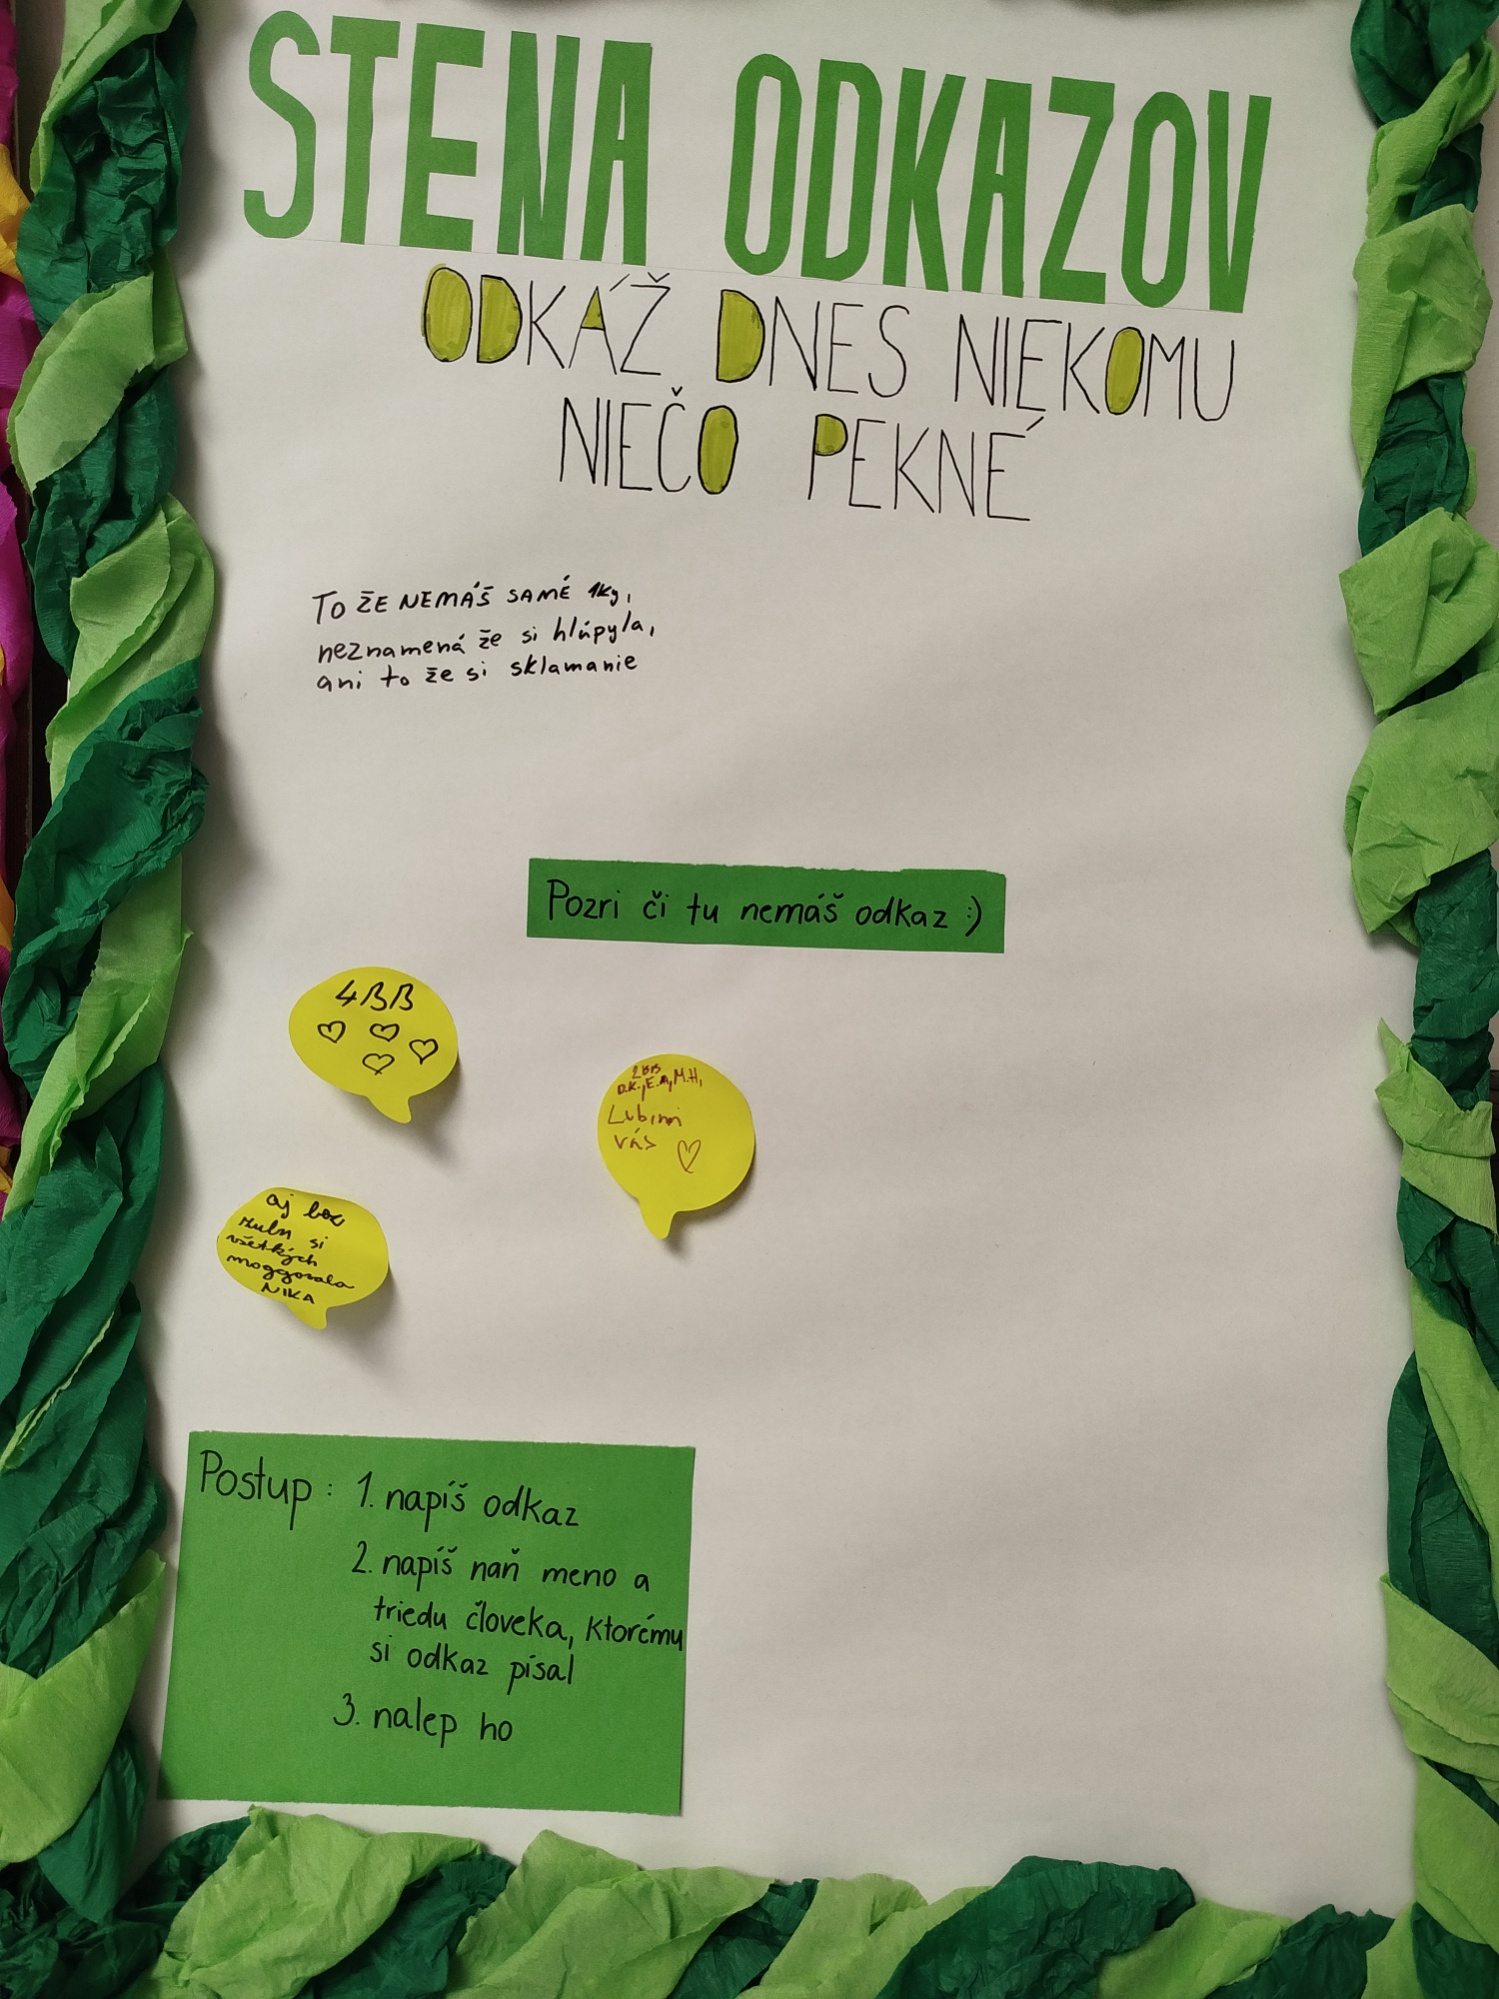 STENA ODKAZOV
ODKÁŽ DNES NIEKOMU
NIEČO PEKNÉ
TO ŽE NEMÁŠ SAMÉ 1ky,
neznamená že si hlúpyla,
ani to že si sklamanie
Pozri či tu nemáš odkaz :)
4BB
2BB
D.K., E.A, M.H,
Lubim
vás
aj bez
zubu si
všetkých
moggovala
NIKA
Postup: 1. napíš odkaz
2. napíš naň meno a
triedu človeka, ktorému
si odkaz písal
3. nalep ho